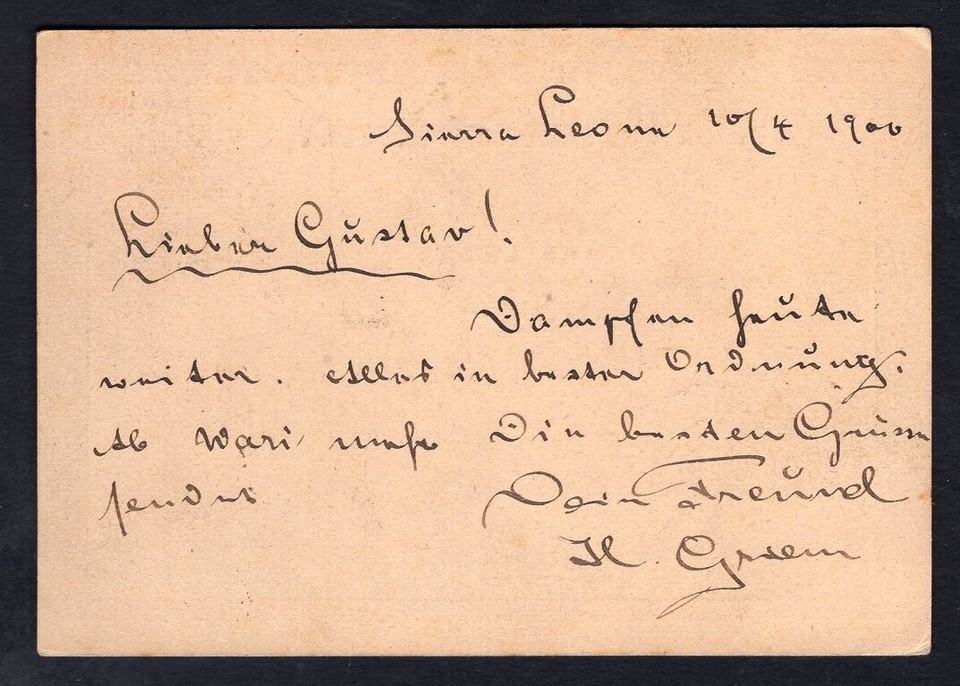 Sierra Leone 10/4 1900
Lieber Gustav!
Dampfen heute
weiter. Alles in bester Ordnung.
Ab Wari mehr Die besten Grüsse
sendet Dein Freund
H.